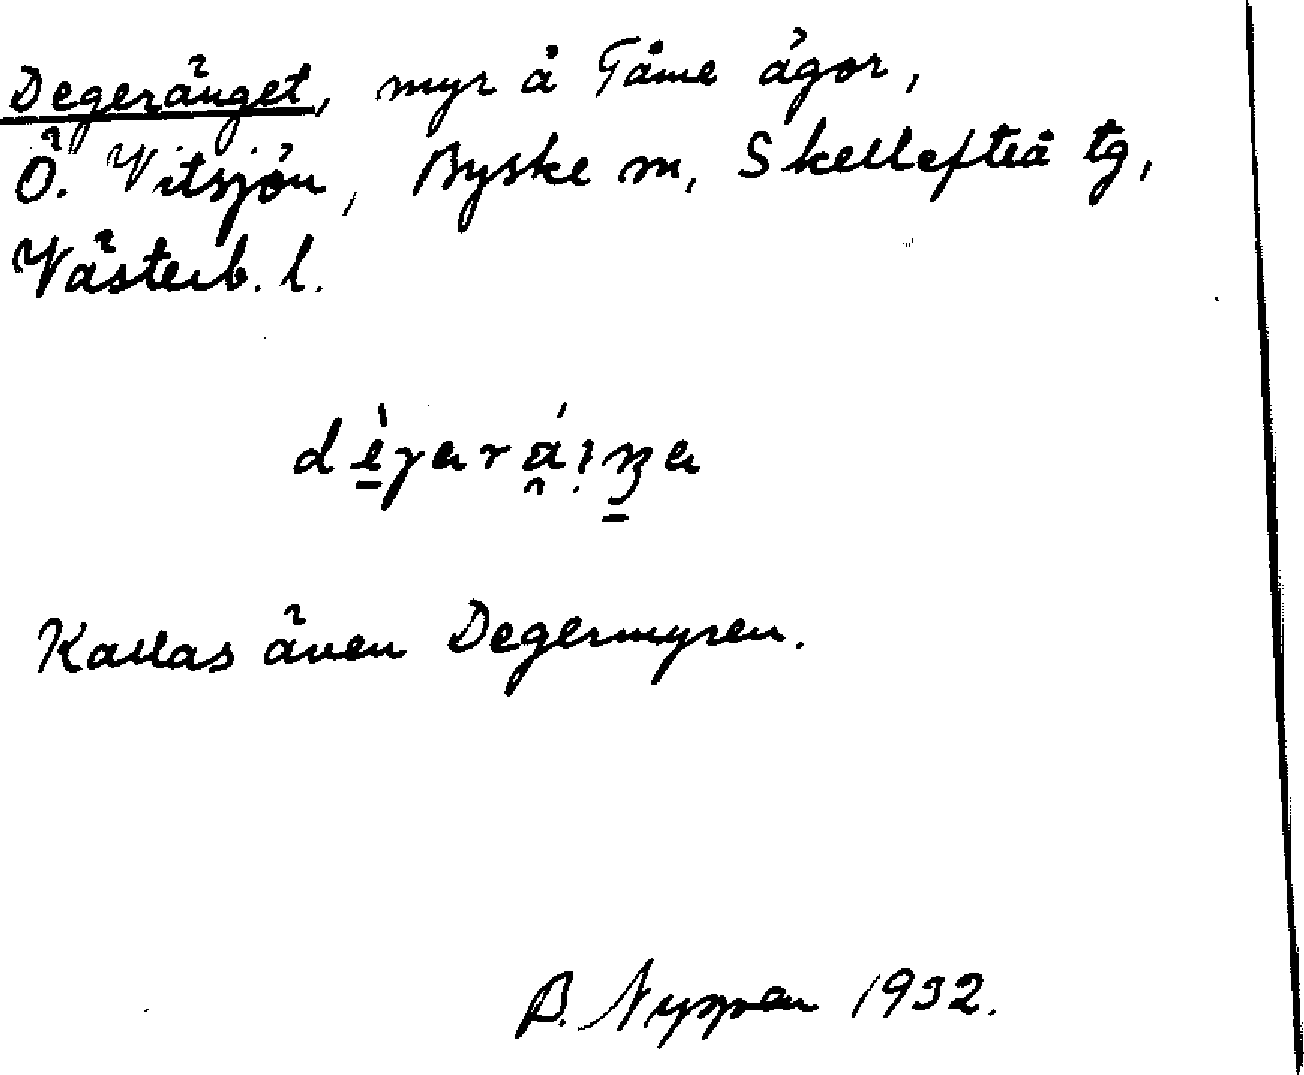 Degeränget, myr å Tåme ägor,
Ö. Vitsjön, Byske sn, Skellefteå tg,
Västerb. l.
Kallas även Degermyren.
B. 1932.